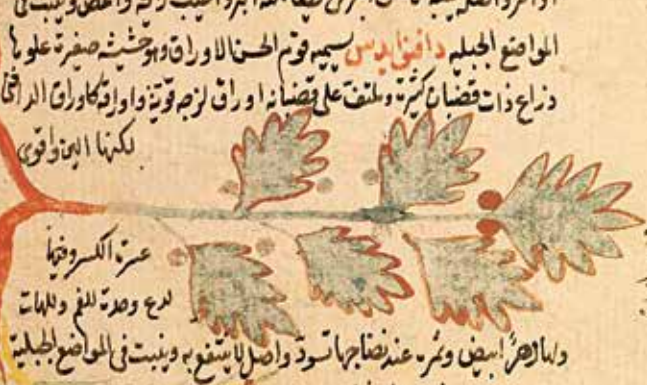 المواضع الجبليه دافنايدس يسميه قوم الحسن الاوراق وهو حشيشه صغيرة علوها
ذراع ذات قضبان كثيرة وملتف على قضبانه اوراق لزجه قوية واوراقه كاوراق الدافني
لكنها الين واقوى
عسرة الكسر وفيها
لدع وحدة للفم وللهات
ولها زهر ابيض وثمره عند نضاجها تسود واصل لا ينتفع به وينبت في المواضع الجبلية